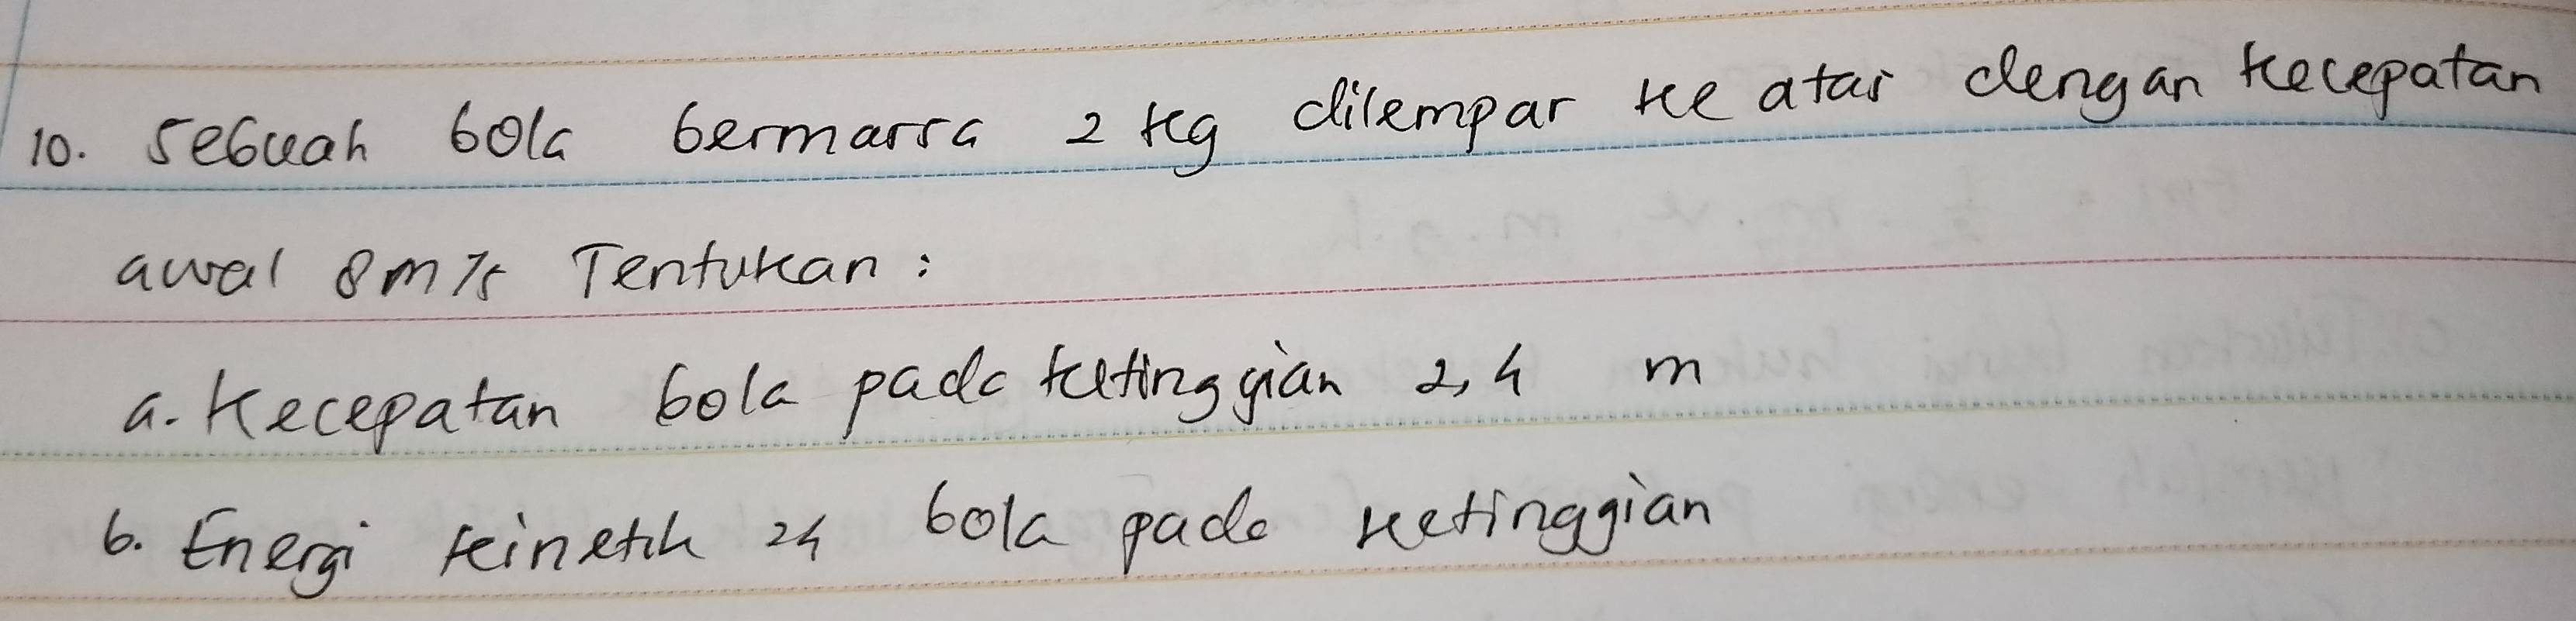 10. Sebuah bola bermassa 2 kg dilempar ke atas dengan kecepatan
awal 8 m/s Tentukan :
a. Kecepatan bola pada ketinggian 2,4 m
b. Energi kinetik 24 bola pada ketinggian